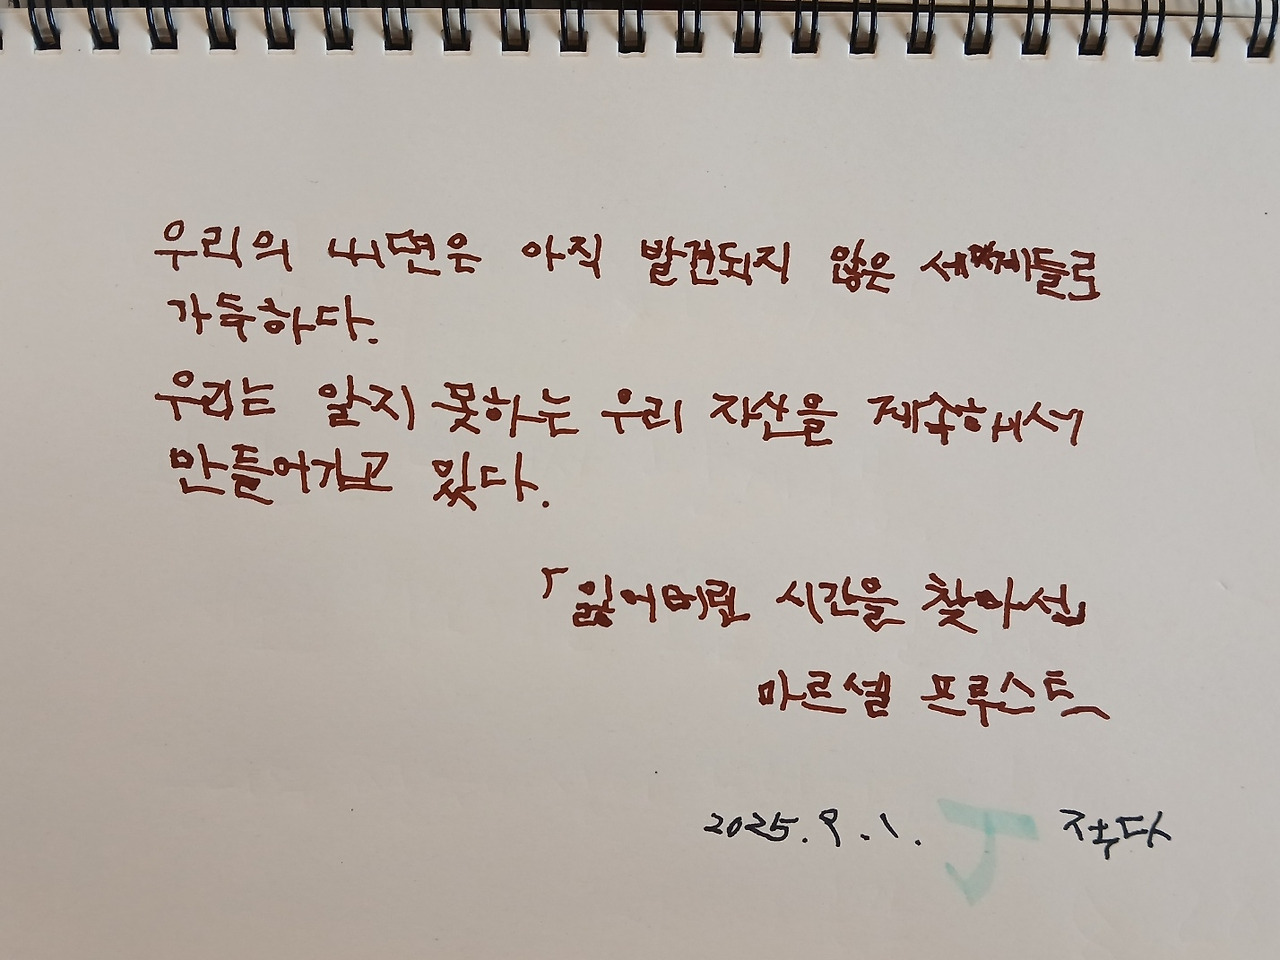 우리의 내면은 아직 발견되지 않은 세계들로
가득하다.
우리는 알지 못하는 우리 자산을 계속해서
만들어가고 있다.
「잃어버린 시간을 찾아서」
마르셀 프루스트
2025. 9. 1.